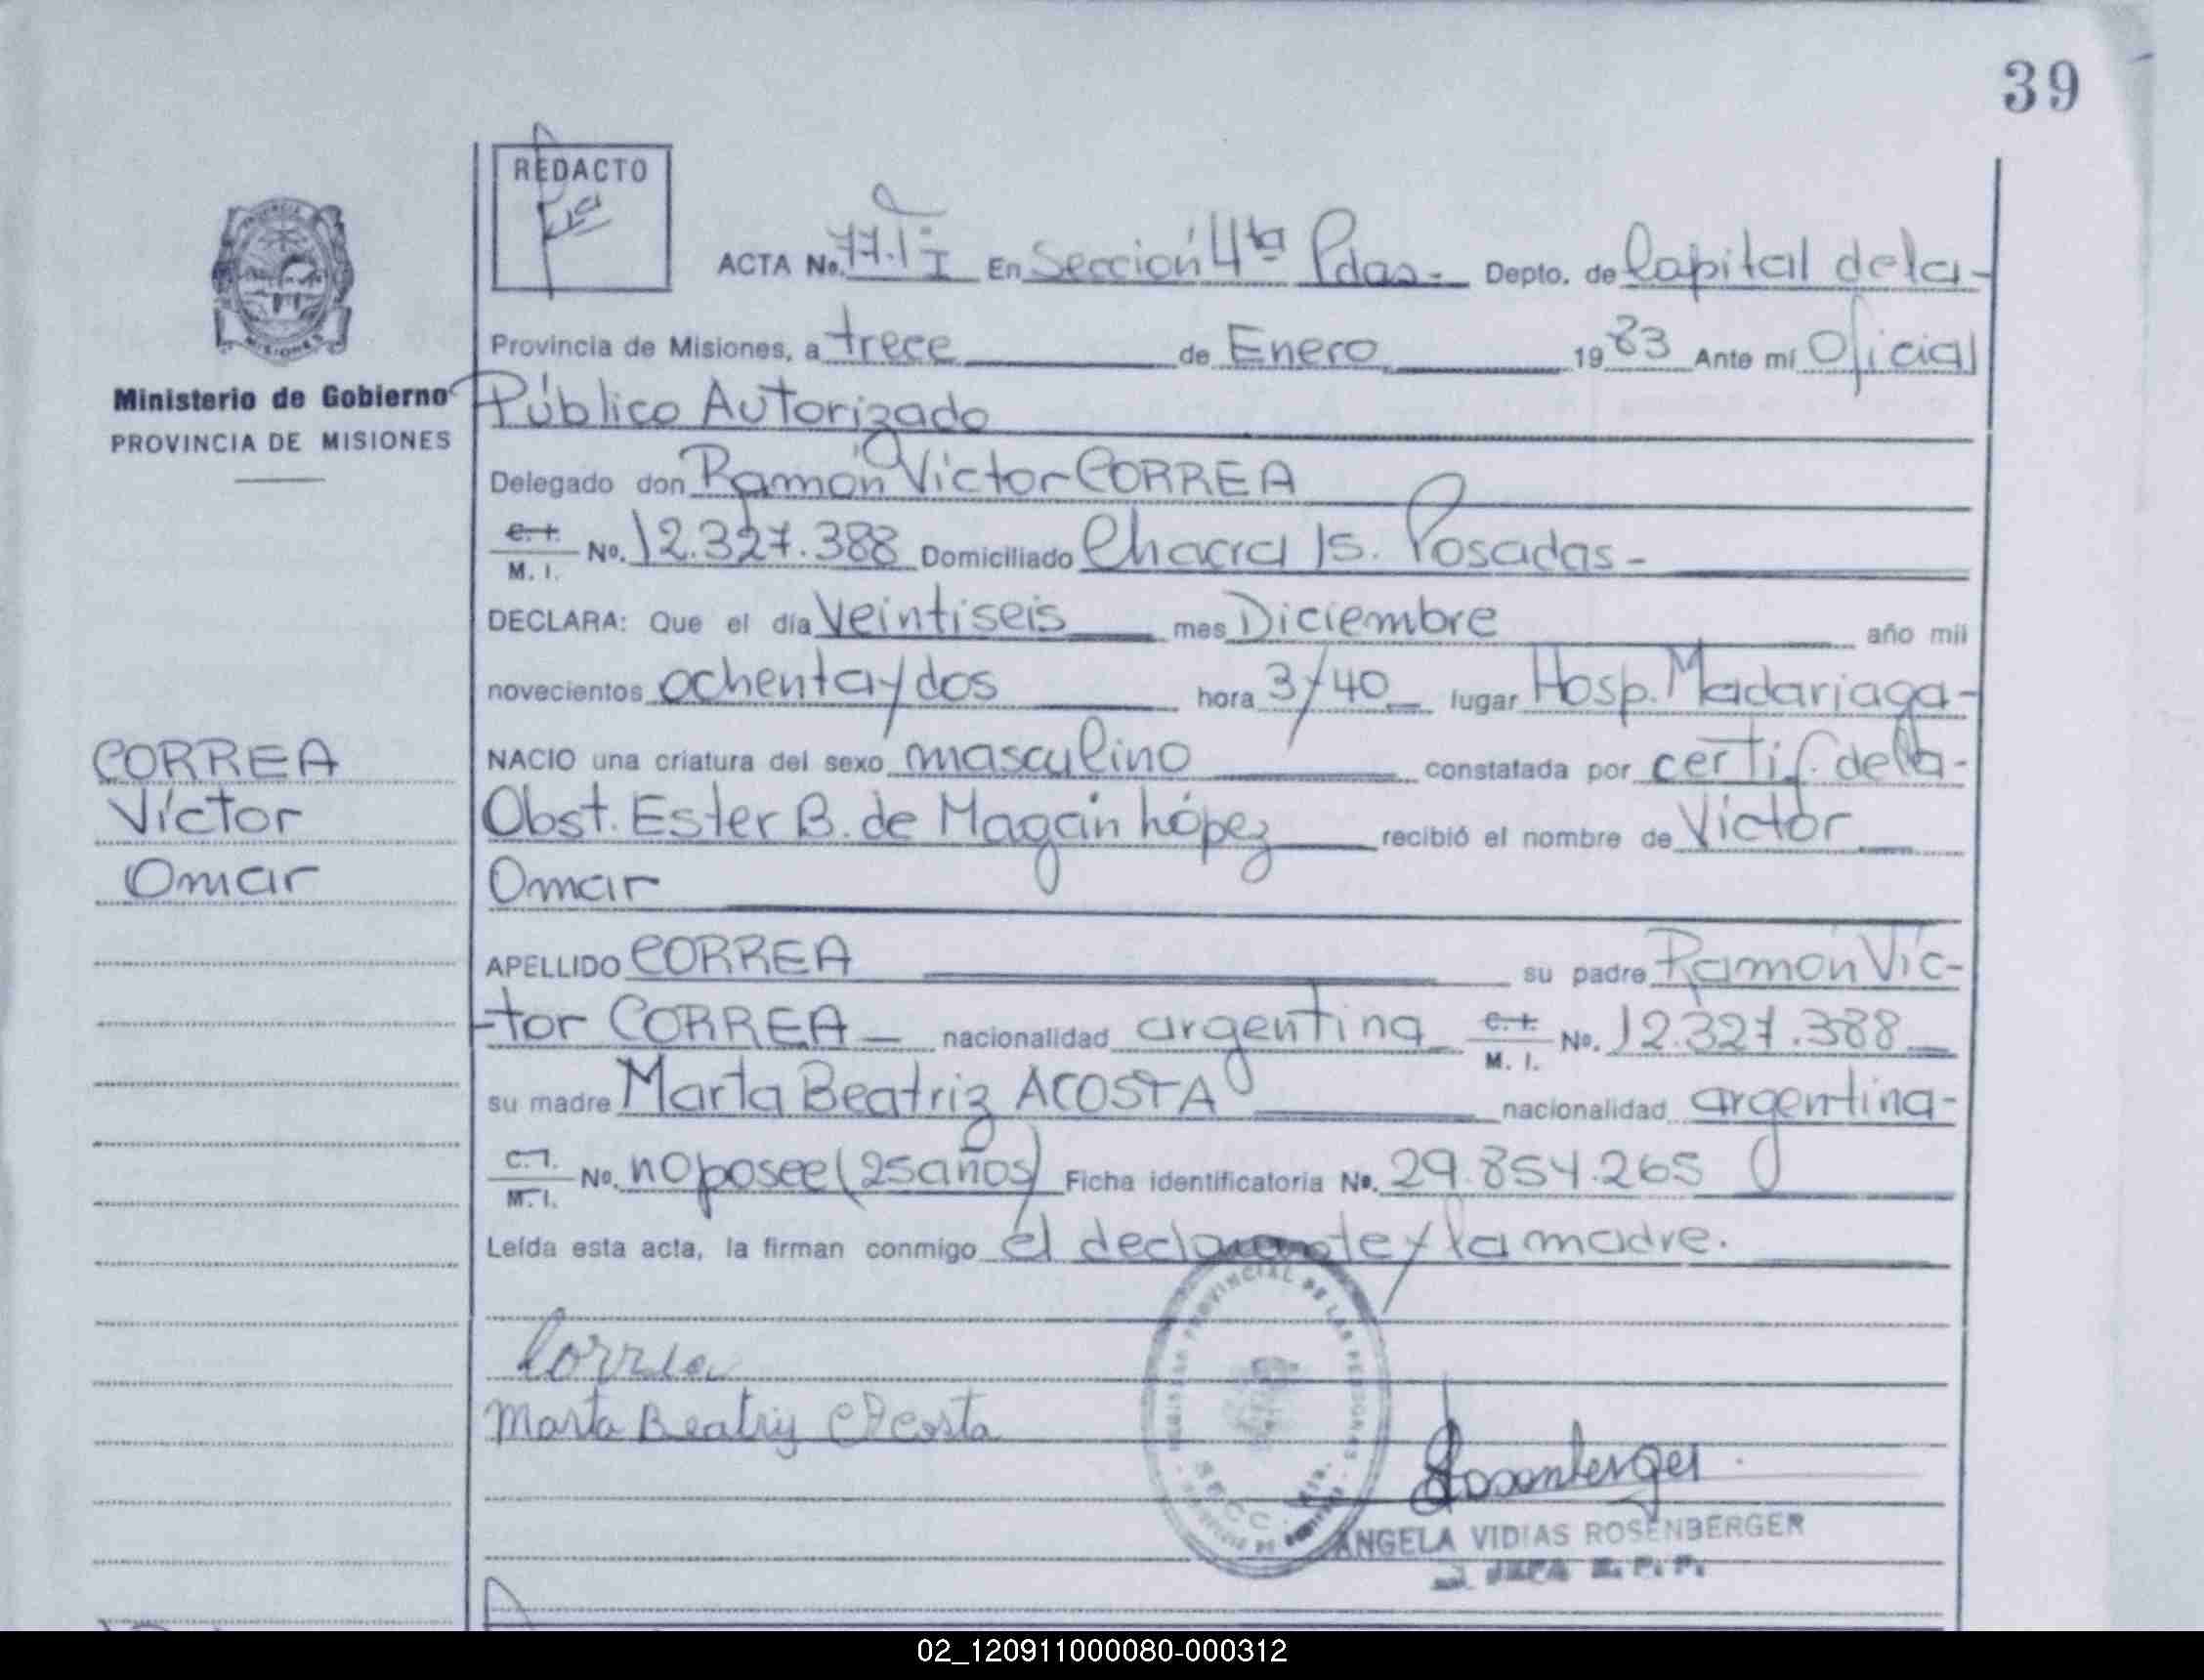 39
REDACTO
PROVINCIA
MISIONES
ACTA No. 77.T I En Sección 4ta Pdas.- Depto. de Capital de la-
Provincia de Misiones, a trece de Enero 1983 Ante mí Oficial
Ministerio de Gobierno
PROVINCIA DE MISIONES
Público Autorizado
Delegado don Ramón Víctor CORREA
C. I. M. I. No. 12.327.388 Domiciliado Chacra 15. Posadas-
DECLARA: Que el día Veintiseis mes Diciembre año mil
novecientos ochenta y dos hora 3 y 40 lugar Hosp. Madariaga-
NACIO una criatura del sexo masculino constatada por certif. de la-
Obst. Ester B. de Magán López recibió el nombre de Víctor
Omar
CORREA
Víctor
Omar
APELLIDO CORREA su padre Ramón Víc-
-tor CORREA - nacionalidad argentina C. I. M. I. No. 12.327.388
su madre Marta Beatriz ACOSTA nacionalidad argentina-
C. I. M. I. No. no posee (25 años) Ficha identificatoria No. 29.854.265
Leída esta acta, la firman conmigo el declarante y la madre.
Correa
Marta Beatriz Acosta
PROVINCIAL DE LAS PERSONAS
SECC. 4ta.
Rosenberger
ANGELA VIDIAS ROSENBERGER
JEFA
02_120911000080-000312